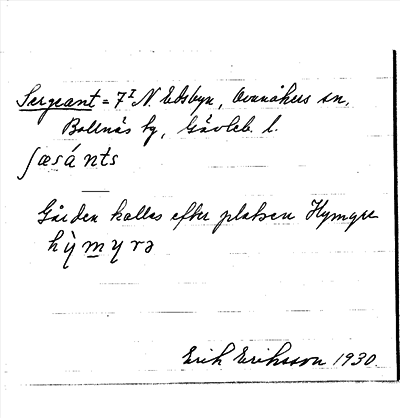 Sergeant = 7 I N. Edsbyn, Ovanåkers sn,
Bollnäs tg, Gävleb. l.
ʃæsánts
Gården kallas efter platsen Hymyre
hỳmyrə
Erik Eriksson 1930